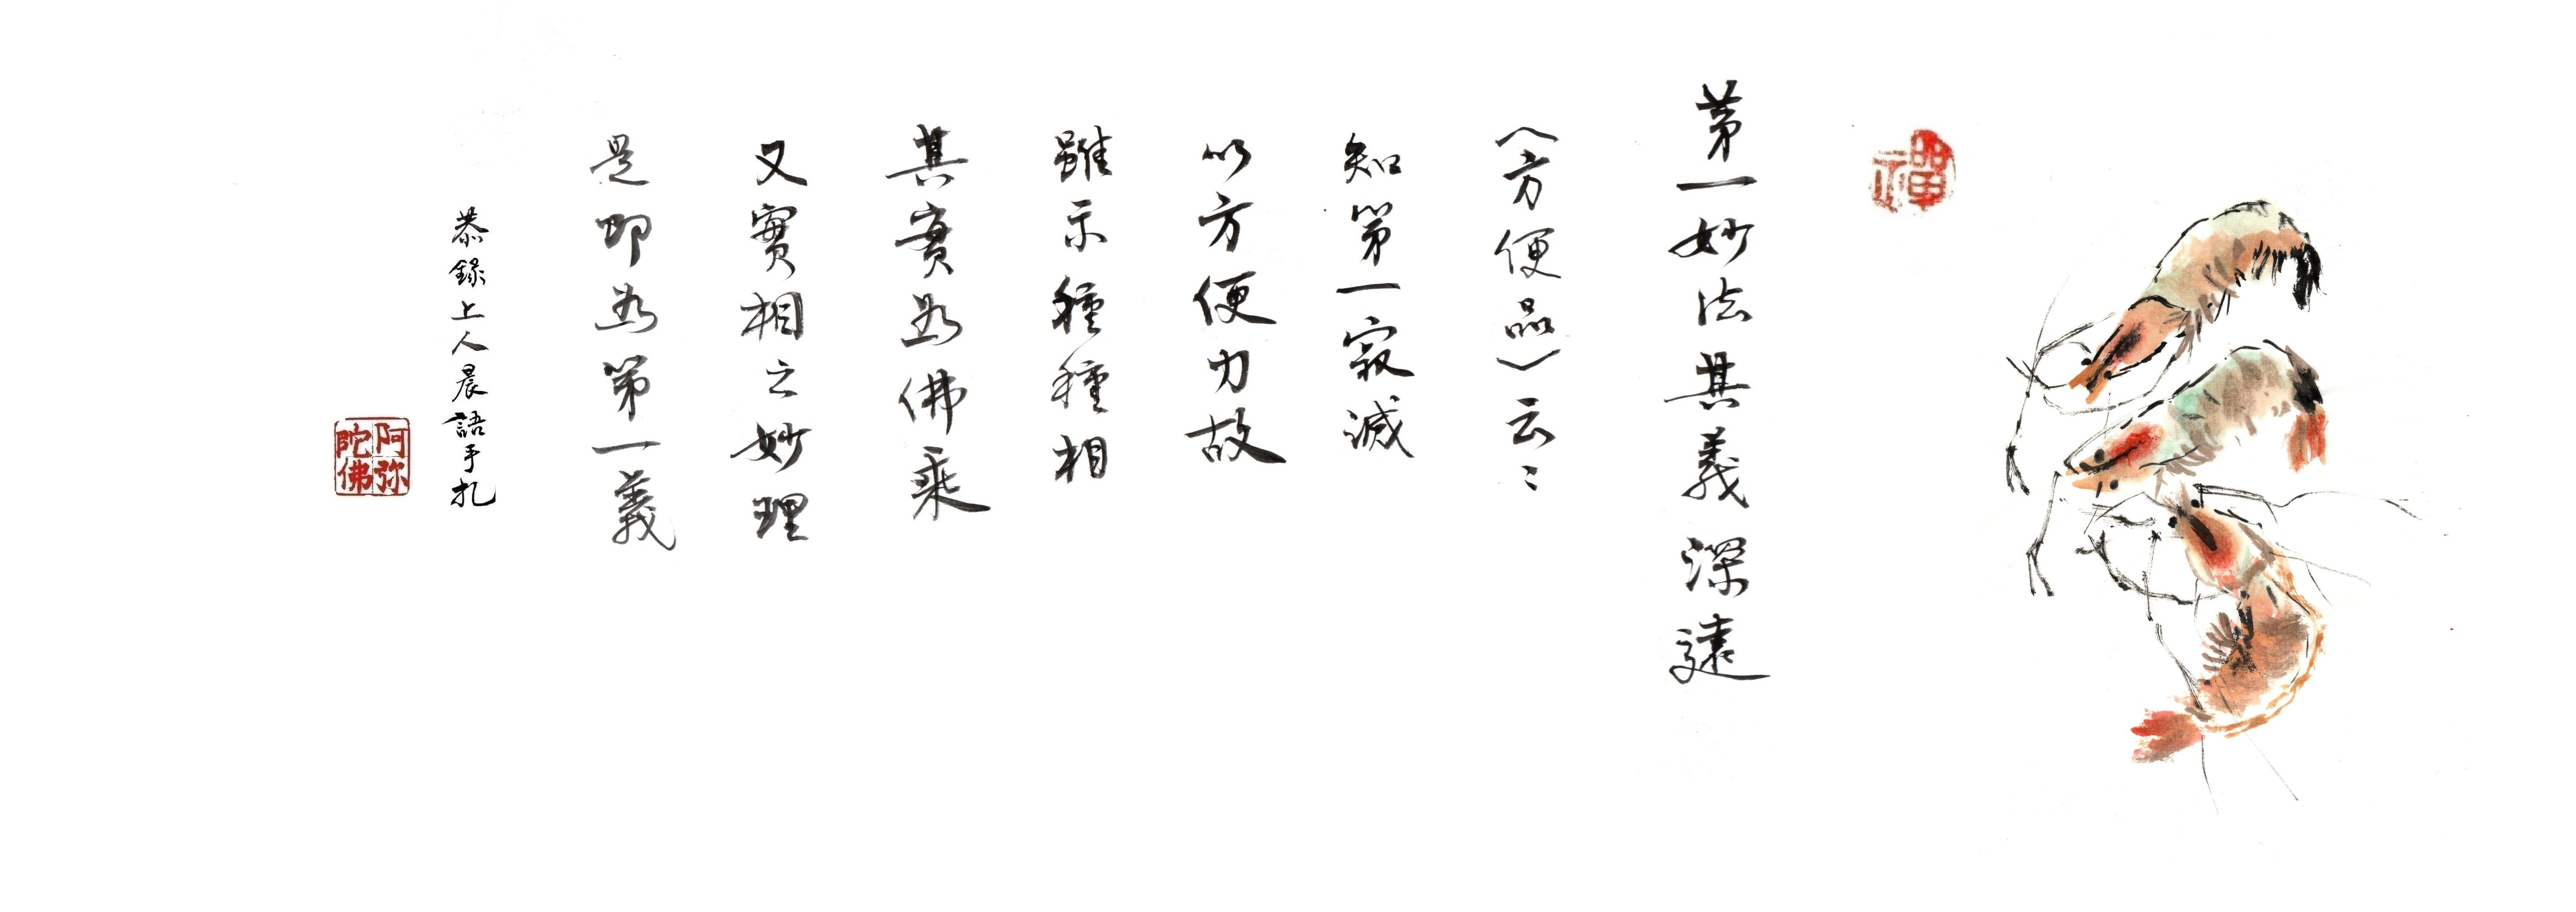 禪
第一妙法其義深遠
〈方便品〉云：
知第一寂滅
以方便力故
雖示種種相
其實為佛乘
又實相之妙理
是即為第一義
恭錄上人晨語手札
阿弥陀佛